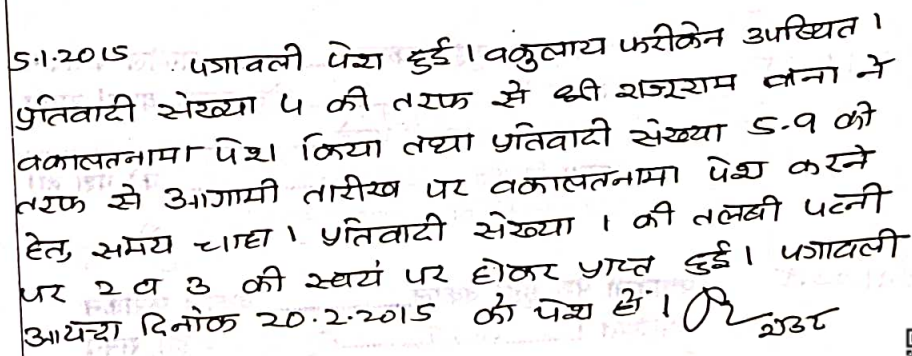 5.1.2015 पत्रावली पेश हुई। वकुलाय फरीकेन उपस्थित।
प्रतिवादी संख्या 4 की तरफ से श्री राजूराम बाना ने
वकालतनामा पेश किया तथा प्रतिवादी संख्या 5-9 की
तरफ से आगामी तारीख पर वकालतनामा पेश करने
हेतु समय चाहा। प्रतिवादी संख्या 1 की तलबी पत्नी
पर 2 व 3 की स्वयं पर होकर प्राप्त हुई। पत्रावली
आयंदा दिनांक 20.2.2015 को पेश हो।